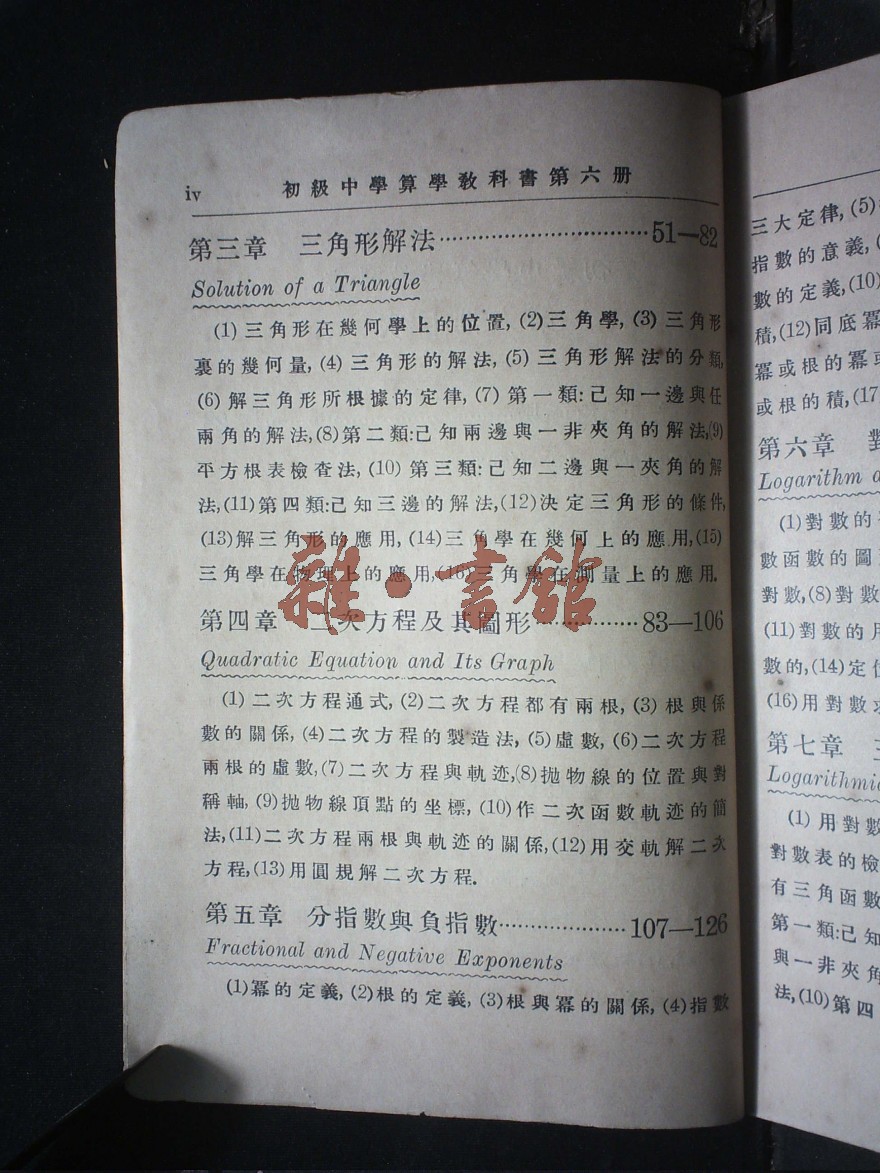 iv 初級中學算學敎科書第六册
第三章 三角形解法······························51—82
Solution of a Triangle
(1)三角形在幾何學上的位置, (2)三角學, (3)三角形
裏的幾何量, (4)三角形的解法, (5)三角形解法的分類,
(6)解三角形所根據的定律, (7)第一類:已知一邊與任
兩角的解法,(8)第二類:已知兩邊與一非夾角的解法,(9)
平方根表檢查法, (10)第三類:已知二邊與一夾角的解
法,(11)第四類:已知三邊的解法,(12)決定三角形的條件,
(13)解三角形的應用, (14)三角學在幾何上的應用,(15)
三角學在物理上的應用,(16)三角學在測量上的應用.
雜·書館
第四章 二次方程及其圖形···············83—106
Quadratic Equation and Its Graph
(1)二次方程通式, (2)二次方程都有兩根, (3)根與係
數的關係, (4)二次方程的製造法, (5)虛數, (6)二次方程
兩根的虛數,(7)二次方程與軌迹,(8)拋物線的位置與對
稱軸, (9)拋物線頂點的坐標, (10)作二次函數軌迹的簡
法,(11)二次方程兩根與軌迹的關係,(12)用交軌解二次
方程,(13)用圓規解二次方程.
第五章 分指數與負指數···················107—126
Fractional and Negative Exponents
(1)冪的定義, (2)根的定義, (3)根與冪的關係, (4)指數
三大定律, (5)
指數的意義,
數的定義,(10)
積,(12)同底冪
冪或根的冪或
或根的積,(17)
第六章 對
Logarithm a
(1)對數的
數函數的圖
對數,(8)對數
(11)對數的用
數的,(14)定位
(16)用對數求
第七章
Logarithmic
(1)用對數
對數表的檢
有三角函數
第一類:已知
與一非夾角
法,(10)第四